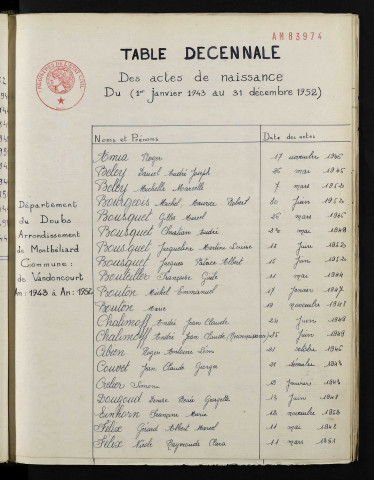 AM 83974
TABLE DECENNALE
Des actes de naissance
Du (1er janvier 1943 au 31 décembre 1952)
Noms et Prénoms Date des actes
Département
du Doubs
Arrondissement
de Montbéliard
Commune :
de Vandoncourt
An : 1943 à An : 1952
Amia Roger 17 novembre 1946
Beley Daniel André Joseph 26 mai 1945
Beley Michelle Marcelle 7 mars 1952
Bourgeois Michel Maurice Robert 20 Juin 1952
Bousquet Gilles Marcel 25 mars 1946
Bousquet Christian André mai 1949
Bousquet Jacqueline Marlène Louise 15 Juin 1952
Bousquet Jacques Albert 15 Juin 1952
Bouteiller Françoise 11 mai 1944
Bouton Michel Emmanuel 17 Janvier 1947
Bouton Marie 19 novembre 1948
Chalimoff André Jean Claude 24 Juin 1948
Chalimoff André Jean Claude (Reconnaissance) 25 Juin 1949
Roger 21 octobre 1946
Couvet Jean Claude Georges 21 février 1943
Simone 12 Janvier 1943
Dougoud Denise 13 Juin 1948
Einhorn Françoise Marie 12 novembre 1952
Félix Gérard Albert Marcel 11 mai 1948
Félix Nicole Raymonde Clara 11 mars 1951